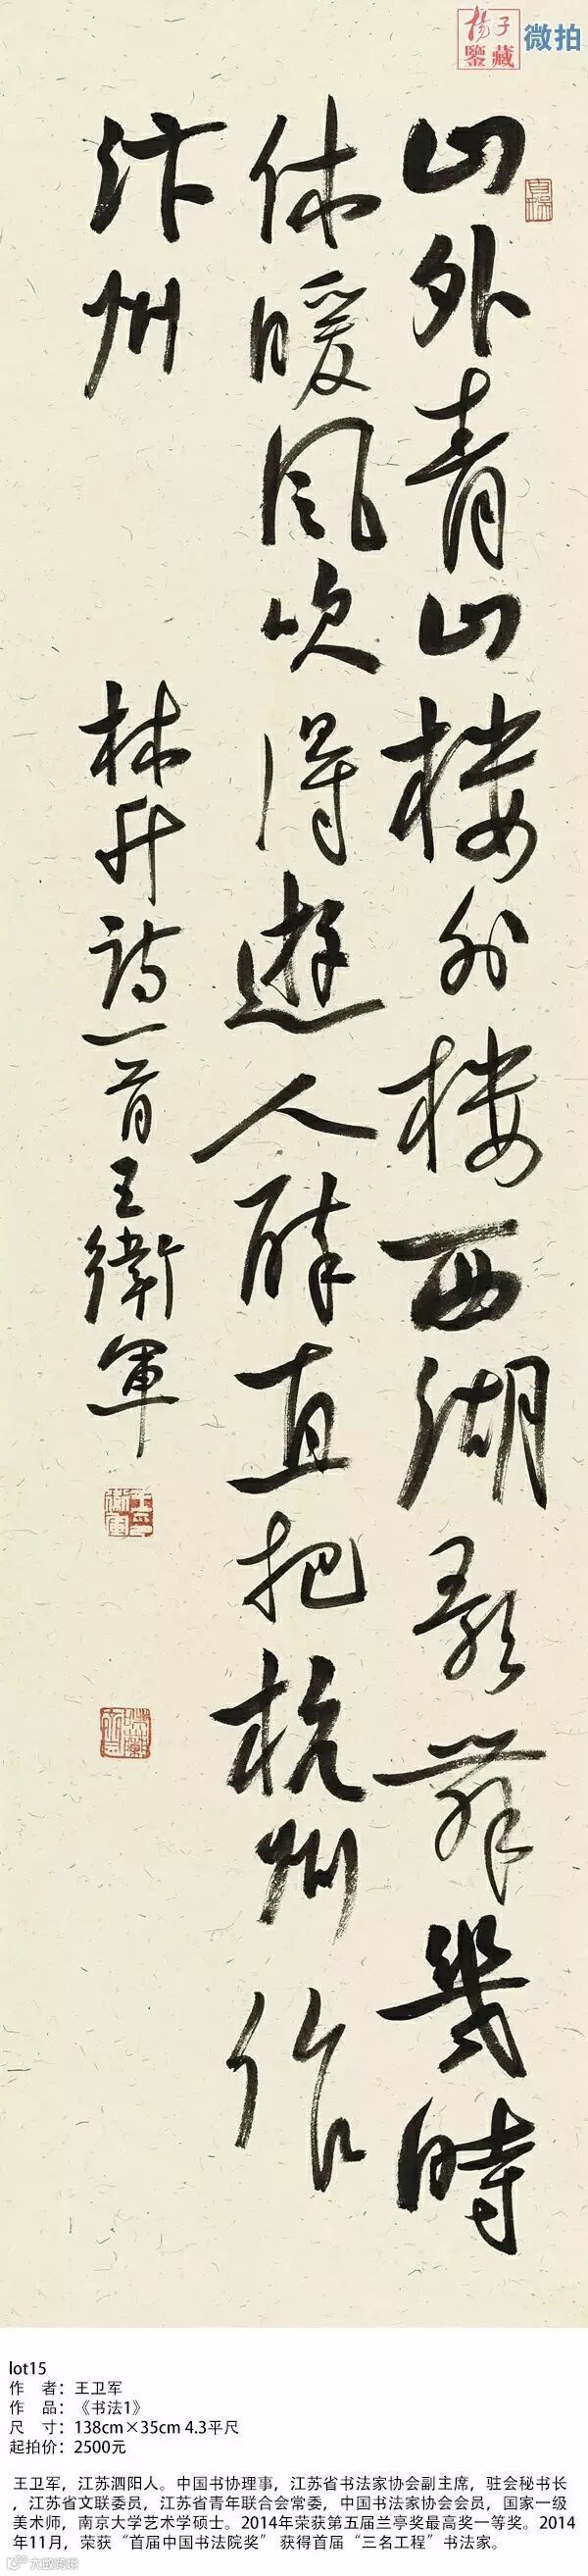 揚子
鑒藏
微拍
山外青山楼外楼西湖歌舞幾時
休暖風吹得遊人醉直把杭州作
汴州
林升詩一首王衛軍
lot15
作 者：王卫军
作 品：《书法1》
尺 寸：138cm×35cm 4.3平尺
起拍价：2500元
王卫军，江苏泗阳人。中国书协理事，江苏省书法家协会副主席，驻会秘书长
，江苏省文联委员，江苏省青年联合会常委，中国书法家协会会员，国家一级
美术师，南京大学艺术学硕士。2014年荣获第五届兰亭奖最高奖一等奖。2014
年11月，荣获“首届中国书法院奖” 获得首届“三名工程”书法家。
大数跨境